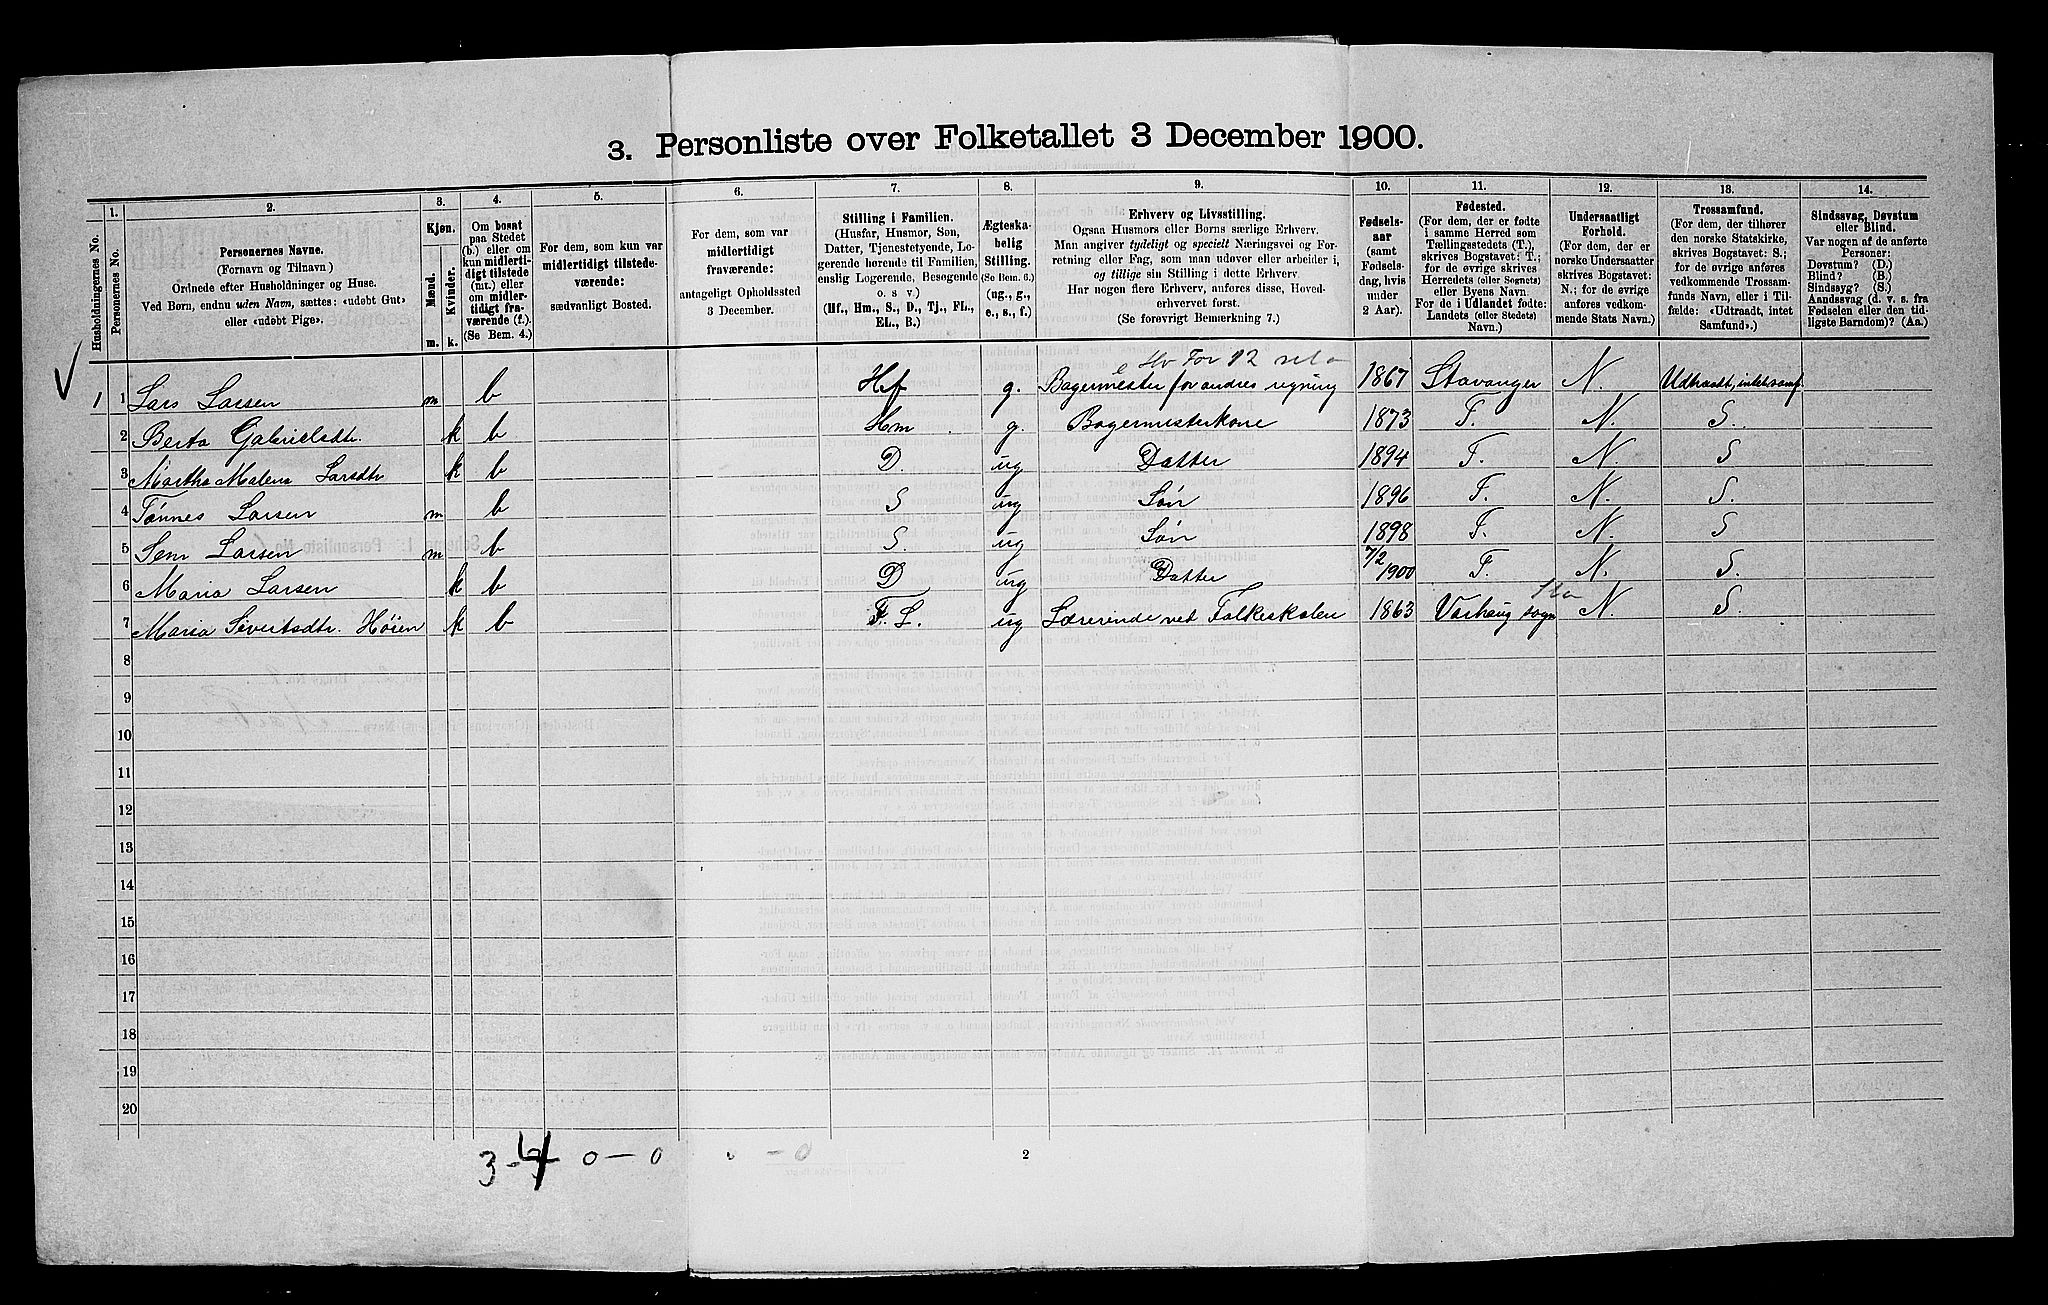 3. Personliste over Folketallet 3 December 1900.
Husholdningernes No.
1. Personernes No.
2. Personernes Navne.
(Fornavn og Tilnavn)
Ordnede efter Husholdninger og Huse.
Ved Børn, endnu uden Navn, sættes: «udøbt Gut»
eller «udøbt Pige».
3. Kjøn.
Mænd. m.
Kvinder. k.
4. Om bosat
paa Stedet
(b.) eller om
kun midlerti-
digt tilstede
(mt.) eller
om midler-
tidigt fra-
værende (f.).
(Se Bem. 4.)
5. For dem, som kun var
midlertidigt tilstede-
værende:
sædvanligt Bosted.
6. For dem, som var
midlertidigt
fraværende:
antageligt Opholdssted
3 December.
7. Stilling i Familien.
(Husfar, Husmor, Søn,
Datter, Tjenestetyende, Lo-
gerende hørende til Familien,
enslig Logerende, Besøgende
o. s. v.)
(Hf., Hm., S., D., Tj., FL.,
EL., B.)
8. Ægteska-
belig
Stilling.
(Se Bem. 6.)
(ug., g.,
e., s., f.)
9. Erhverv og Livsstilling.
Ogsaa Husmors eller Børns særlige Erhverv.
Man angiver tydeligt og specielt Næringsvei og For-
retning eller Fag, som man udøver eller arbeider i,
og tillige sin Stilling i dette Erhverv.
Har nogen flere Erhverv, anføres disse, Hoved-
erhvervet først.
(Se forøvrigt Bemærkning 7.)
10. Fødsels-
aar
(samt
Fødsels-
dag, hvis
under
2 Aar).
11. Fødested.
(For dem, der er fødte
i samme Herred som
Tællingsstedets (T.),
skrives Bogstavet: T.;
for de øvrige skrives
Herredets (eller Sognets)
eller Byens Navn.
For de i Udlandet fødte:
Landets (eller Stedets)
Navn.)
12. Undersaatligt
Forhold.
(For dem, der er
norske Undersaatter
skrives Bogstavet:
N.; for de øvrige
anføres vedkom-
mende Stats Navn.)
13. Trossamfund.
(For dem, der tilhører
den norske Statskirke,
skrives Bogstavet: S.;
for de øvrige anføres
vedkommende Trossam-
funds Navn, eller i Til-
fælde: «Udtraadt, intet
Samfund».)
14. Sindssvag, Døvstum
eller Blind.
Var nogen af de anførte
Personer:
Døvstum? (D.)
Blind? (B.)
Sindssyg? (S.)
Aandssvag (d. v. s. fra
Fødselen eller den tid-
ligste Barndom)? (Aa.)
1 1 Lars Larsen m b Hf g. Bagermester for andres regning 1867 Stavanger N. Udtraadt, intet samf.
2 Berta Gabrielsdtr. k b Hm g. Bagermesterkone 1873 T. N. S.
3 Martha Malena Larsdtr k b D. ug Datter 1894 T. N. S
4 Tønnes Larsen m b S ug Søn 1896 T. N. S.
5 Sem Larsen m b S. ug Søn 1898 T. N. S
6 Maria Larsen k b D ug Datter 7/2 1900 T. N. S.
7 Maria Sivertsdtr. Høien k b F.L. ug Lærerinde ved Folkeskolen 1863 Varhaug sogn N. S.
8
9
10
11
12
13
14
15
16
17
18
19
20
3-4 0-0 0-0
2